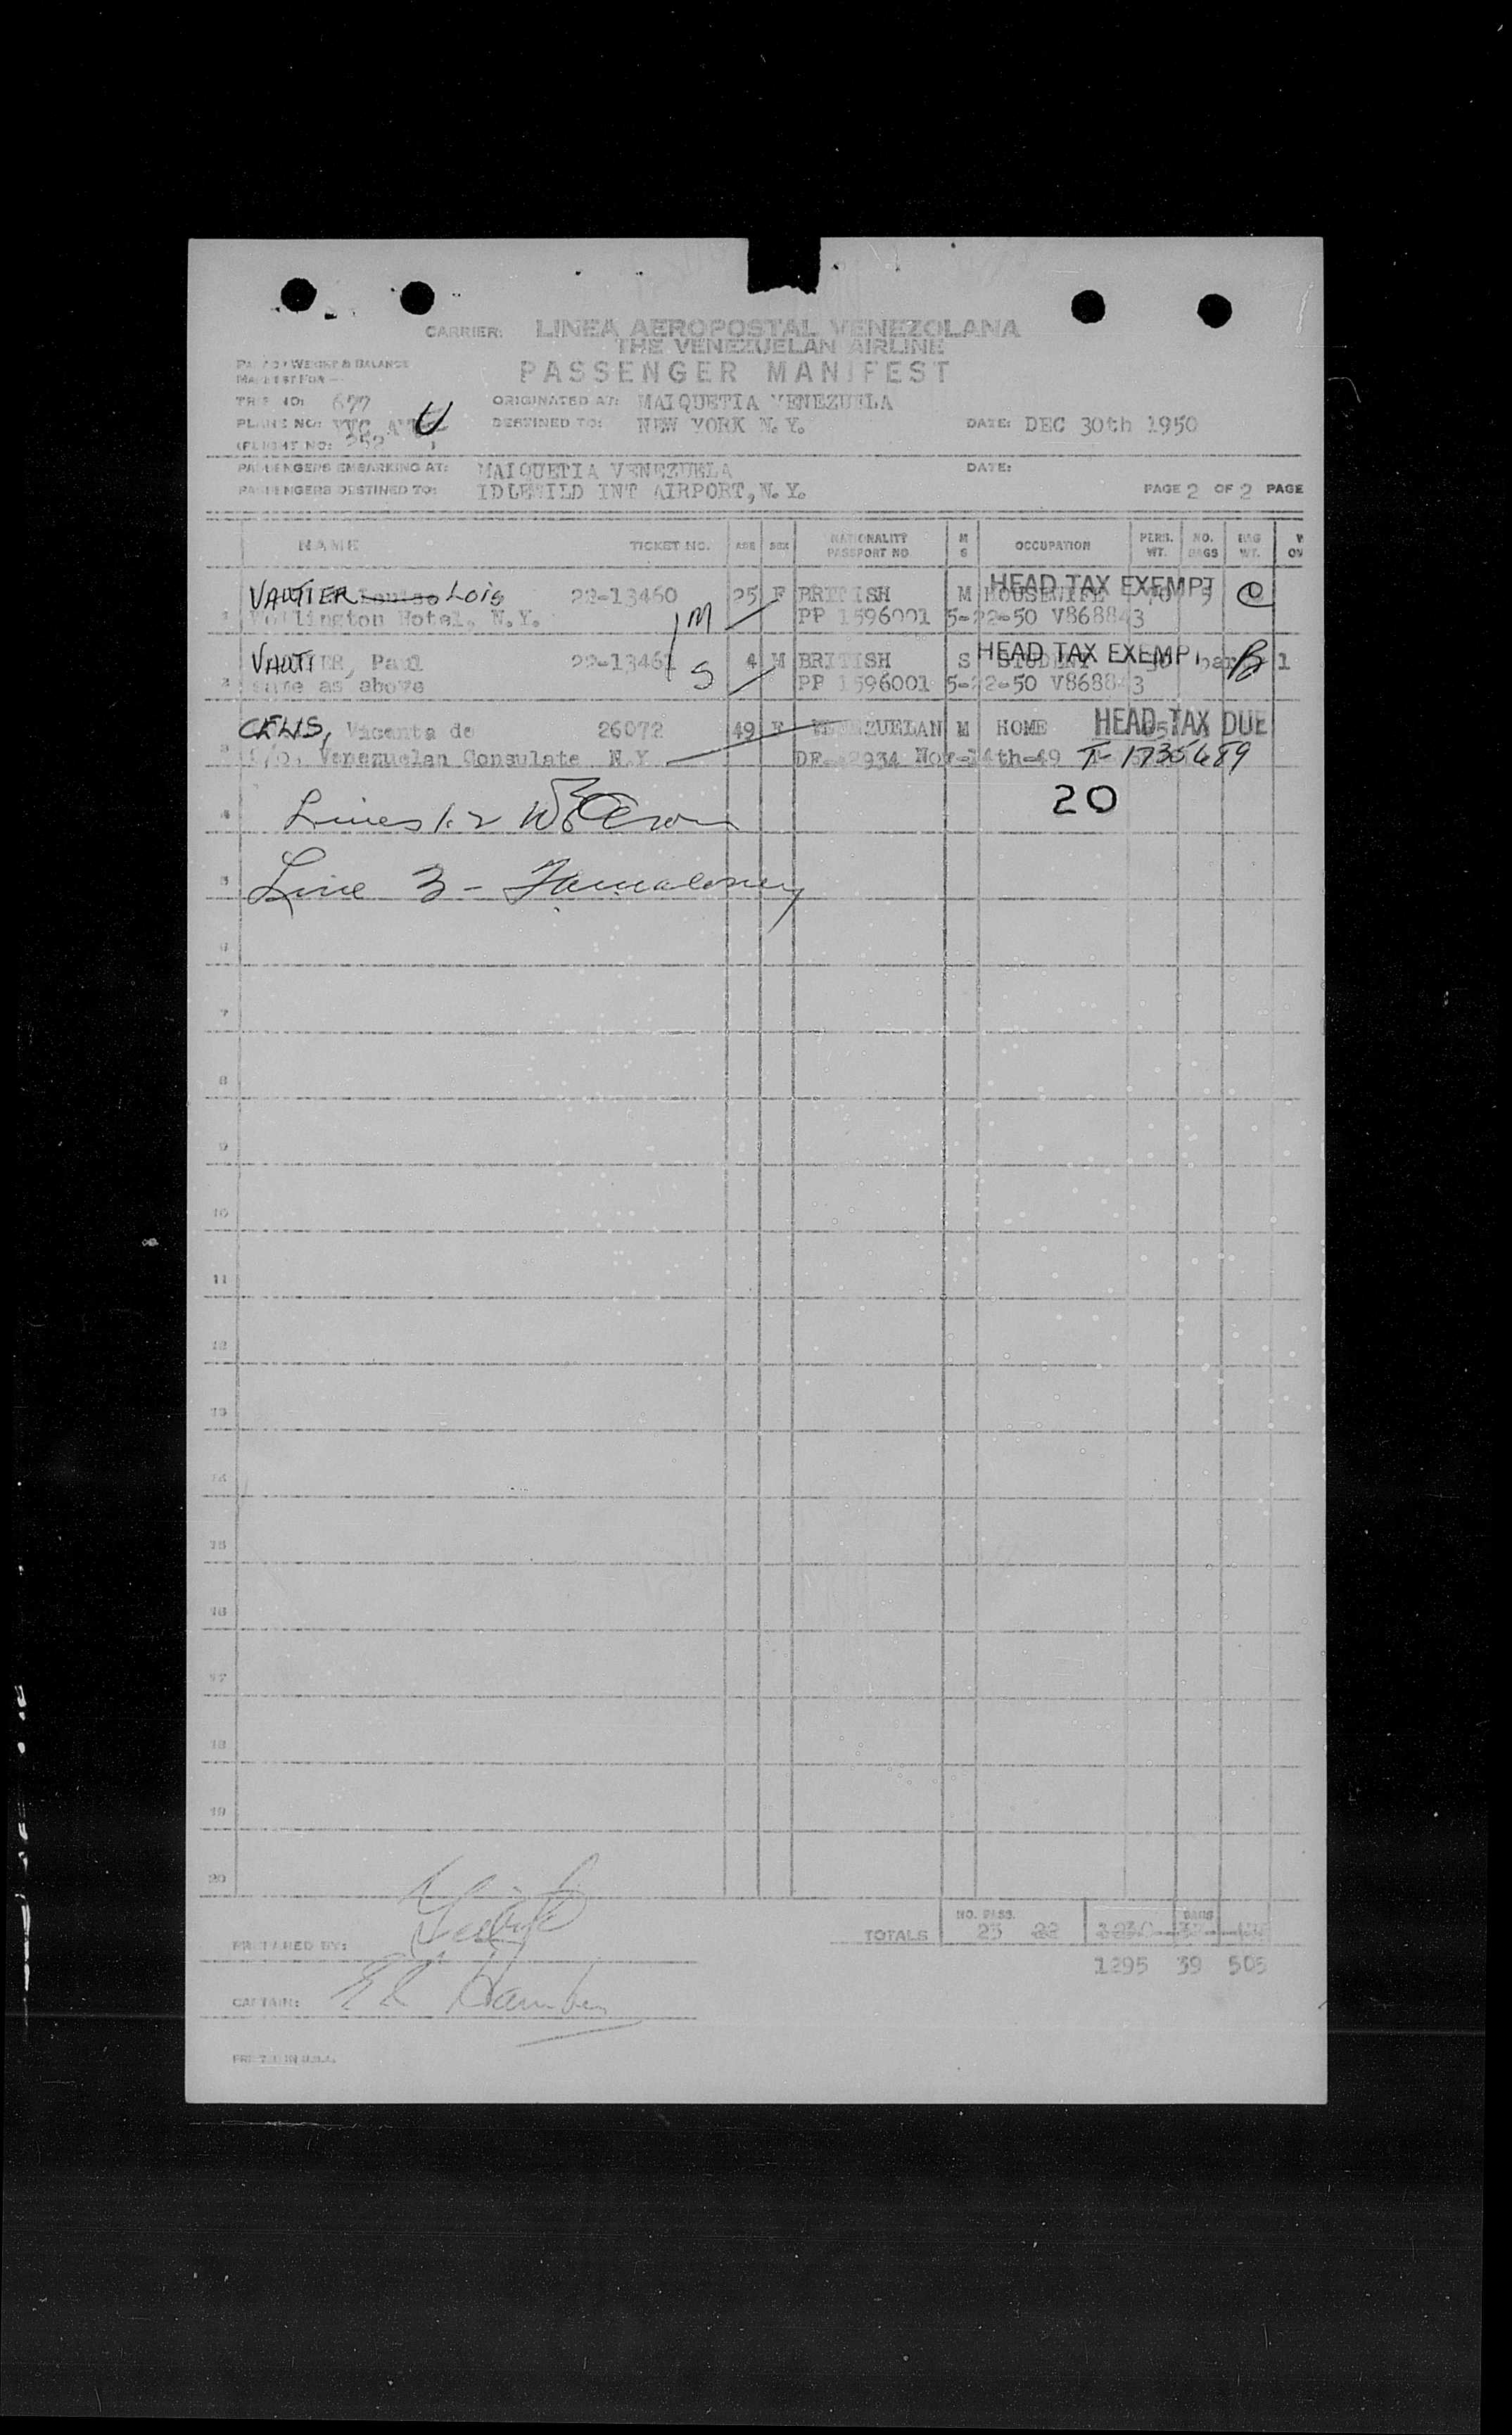 CARRIER: LINEA AEROPOSTAL VENEZOLANA
THE VENEZUELAN AIRLINE
PASSENGER MANIFEST
WEIGHT & BALANCE
MANIFEST FOR —
TRIP NO: 677 ORIGINATED AT: MAIQUETIA VENEZUELA
PLANE NO: YVC U DESTINED TO: NEW YORK N.Y. DATE: DEC 30th 1950
(FLIGHT NO: 252 )
PASSENGERS EMBARKING AT: MAIQUETIA VENEZUELA DATE:
PASSENGERS DESTINED TO: IDLEWILD INT AIRPORT, N.Y. PAGE 2 OF 2 PAGE
NAME TICKET NO. AGE SEX NATIONALITY PASSPORT NO M S OCCUPATION PERS. WT. NO. BAGS BAG WT.
VAUTIER Louise Lois 22-13460 25 F BRITISH M HOUSEWIFE HEAD TAX EXEMPT C
1 Wellington Hotel, N.Y. M PP 1596001 5-22-50 V868843
VAUTIER, Paul 22-13461 4 M BRITISH S STUDENT HEAD TAX EXEMPT B 1
2 same as above S PP 1596001 5-22-50 V868843
CELIS, Vicenta de 26072 49 F VENEZUELAN M HOME HEAD TAX DUE
3 C/o. Venezuelan Consulate N.Y. Nov-14th-49 T-1735689
4 Lines 1.2 20
5 Line 3 -
6
7
8
9
10
11
12
13
14
15
16
17
18
19
20
NO. PASS. BAGS
PREPARED BY: TOTALS 23 22
1295 39 505
CAPTAIN:
PRINTED IN U.S.A.